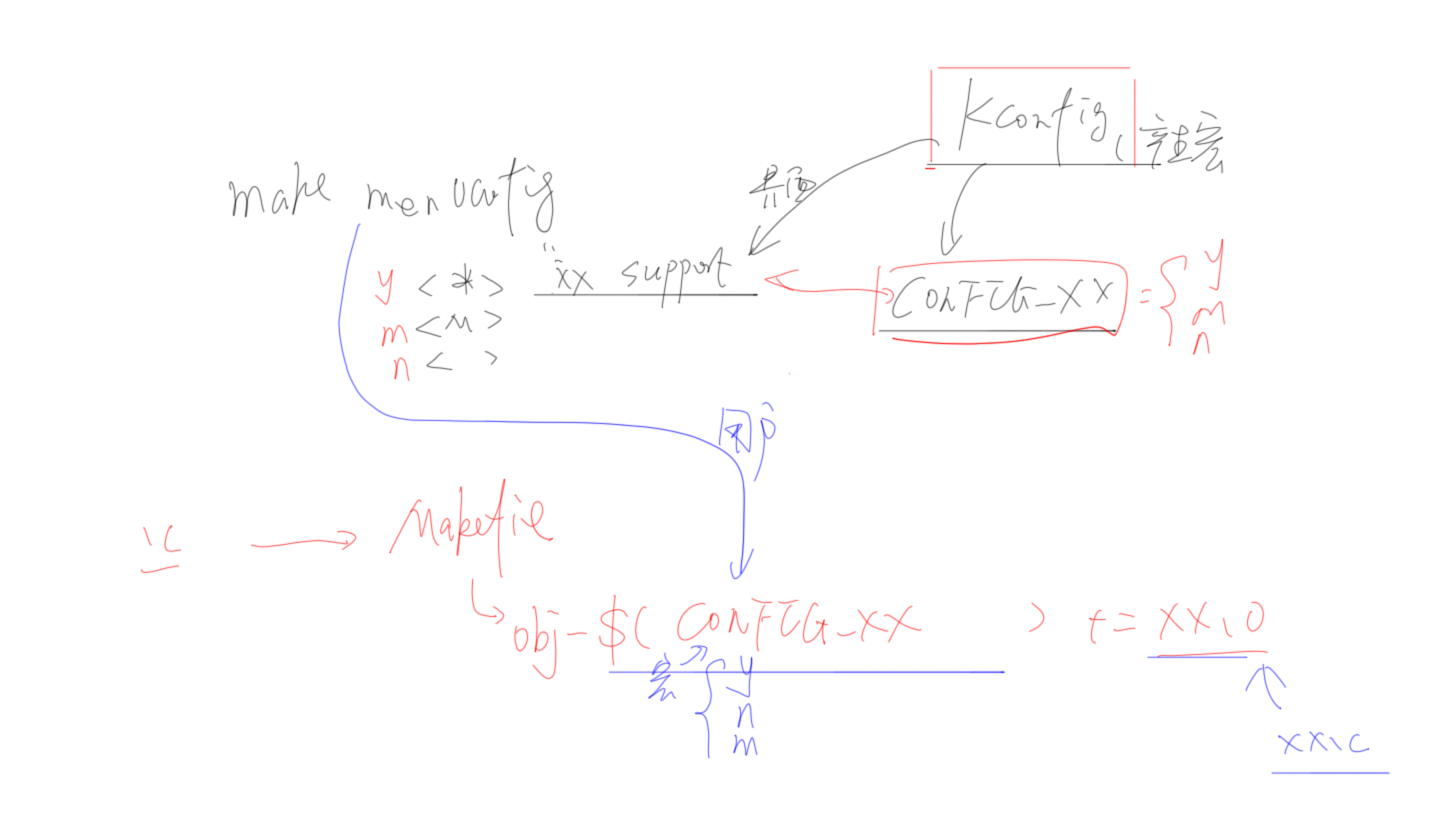 Kconfig, 产生宏
make menuconfig
界面
y <*> "xx support
CONFIG_XX = { y
m <M>
m
n < >
n
用户
.c → Makefile
obj-$( CONFIG_XX ) += xx.o
宏 { y
n
m
xx.c